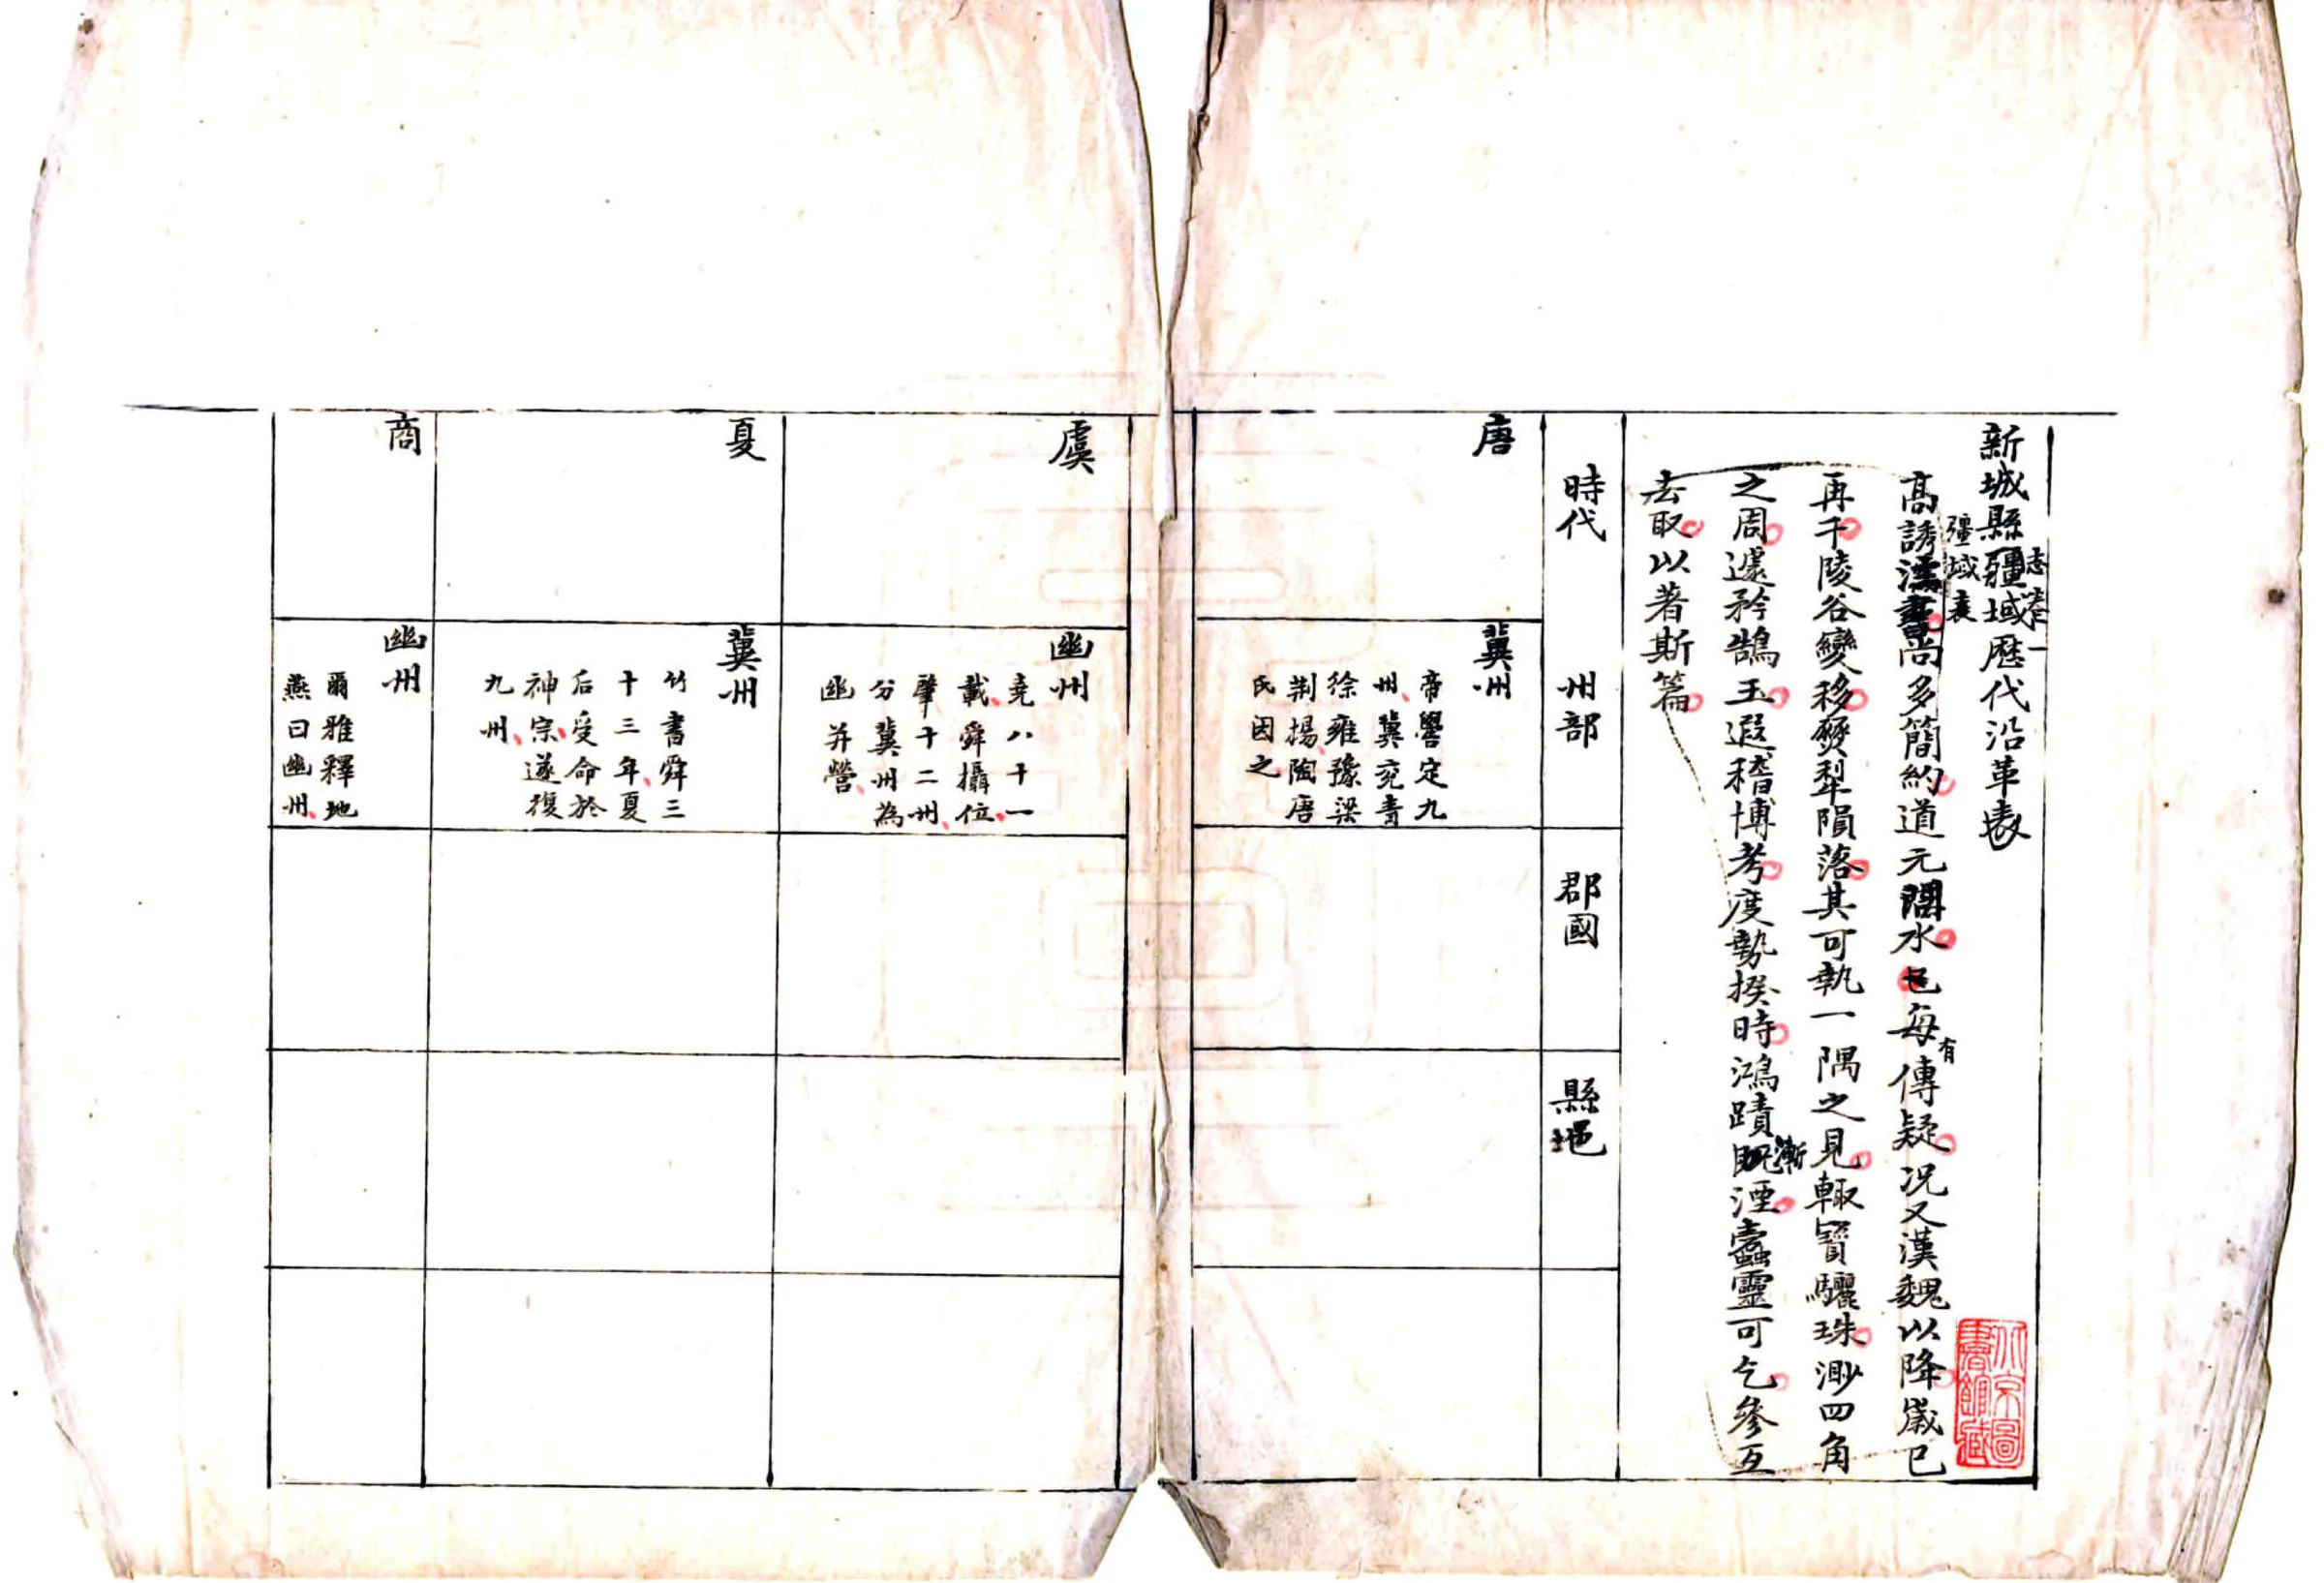 新城縣疆域歷代沿革表
志卷一
疆域表
高誘漢書尚多簡約道元水也每傳疑況又漢魏以降歲已
有
再千陵谷變移變犁隕落其可執一隅之見輒寶驪珠渺四角
之周遽矜鵠玉遐稽博考度勢揆時鴻蹟既湮蠹靈可乞參互
漸
去取以著斯篇
北京圖書館藏
時代
州部
郡國
縣邑
唐
冀州
帝嚳定九
州冀兖青
徐雍豫梁
荆揚陶唐
氏因之
虞
幽州
堯八十一
載舜攝位
肇十二州
分冀州為
幽并營
夏
冀州
竹書舜三
十三年夏
后受命於
神宗遂復
九州
商
幽州
爾雅釋地
燕曰幽州